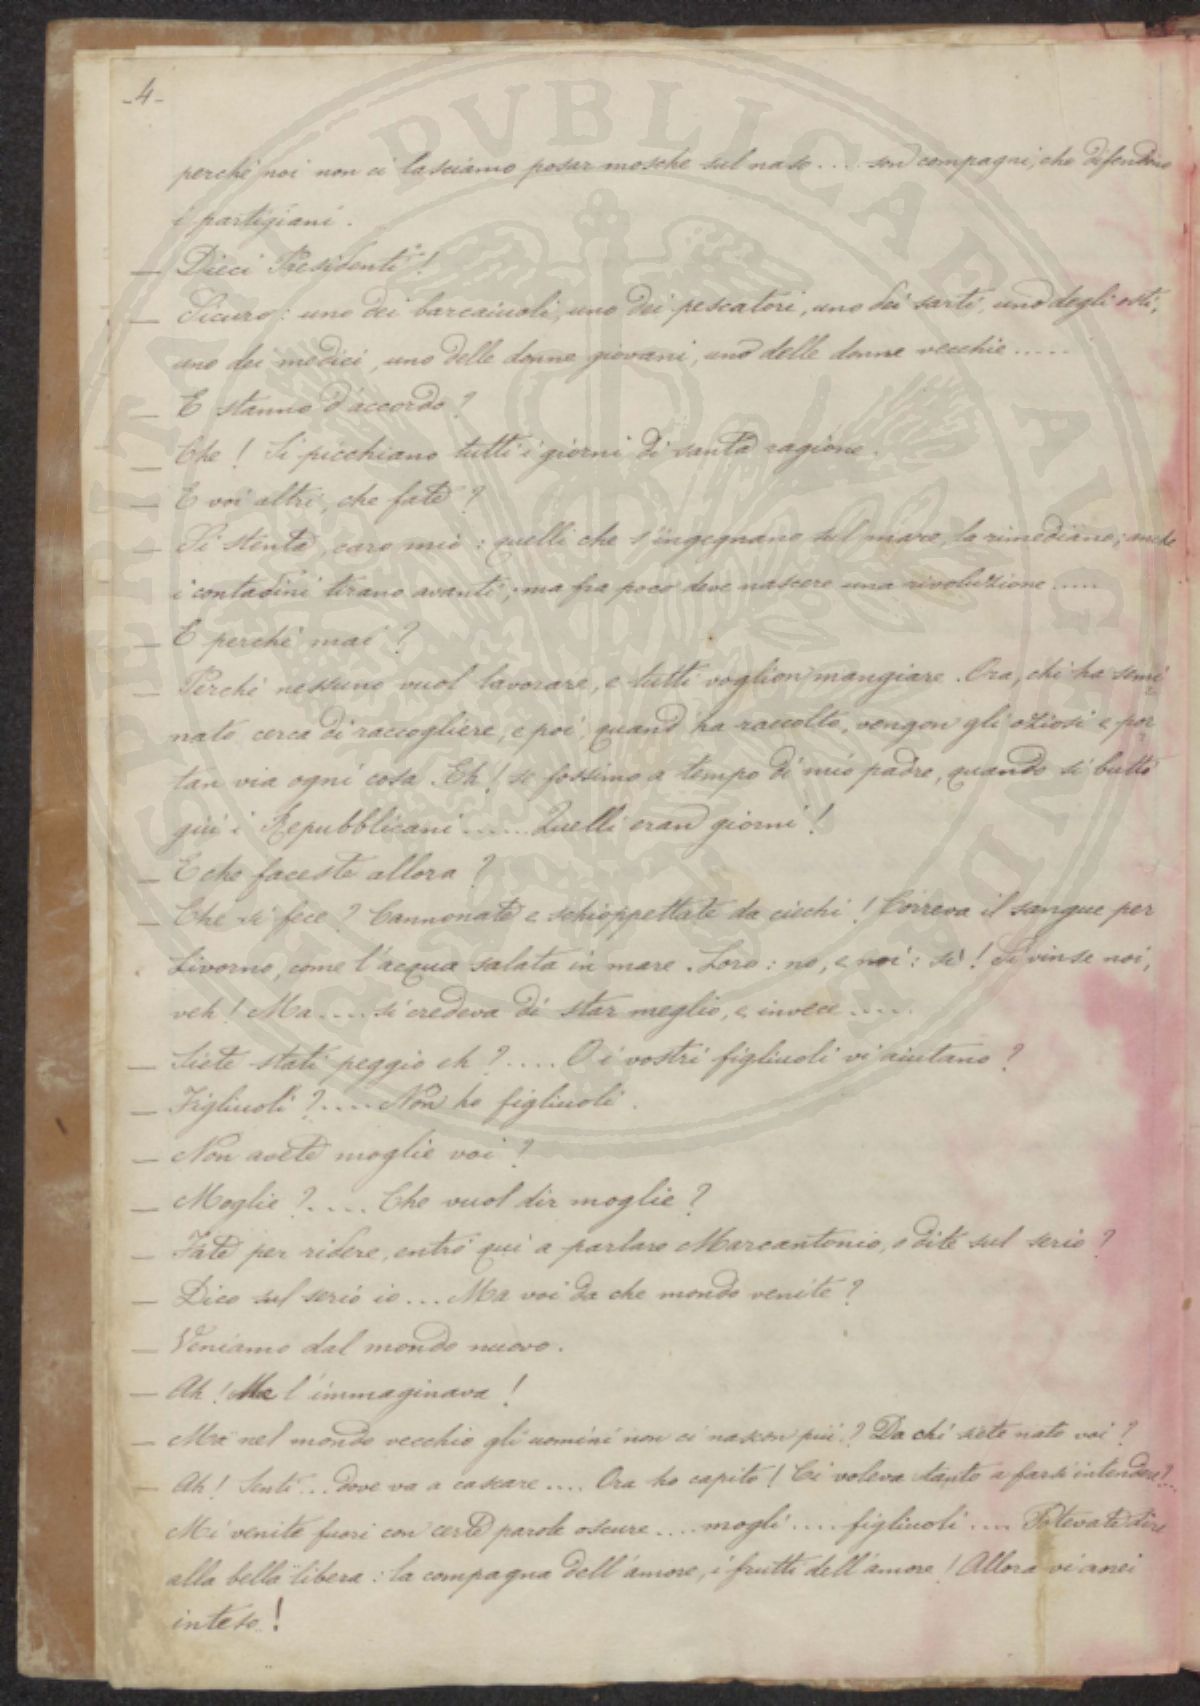 -4-
perchè noi non ci lasciamo posar mosche sul naso.... son compagni, che difendono
i partigiani.
— Dieci Presidenti!
— Sicuro: uno dei barcaiuoli, uno dei pescatori, uno dei sarti, uno degli osti,
uno dei medici, uno delle donne giovani, uno delle donne vecchie.....
— E stanno d'accordo?
— Che! Si picchiano tutti i giorni di santa ragione.
— E voi altri, che fate?
— Si stenta, caro mio: quelli che s'ingegnano sul mare, la rimediano; anche
i contadini tirano avanti; ma fra poco deve nascere una rivoluzione.....
— E perchè mai?
— Perchè nessuno vuol lavorare, e tutti voglion mangiare. Ora, chi ha semi
nato cerca di raccogliere, e poi, quand' ha raccolto, vengon gli oziosi e por
tan via ogni cosa. Eh! se fossimo a tempo di mio padre, quando si buttò
giù i Repubblicani...... Quelli eran giorni!
— E che faceste allora?
— Che si fece? Cannonate e schioppettate da ciechi! Correva il sangue per
Livorno, come l'acqua salata in mare. Loro: no, e noi: sì! Si vinse noi,
veh! Ma.... si credeva di star meglio, e invece.....
— Siete stati peggio eh?.... O i vostri figliuoli vi aiutano?
— Figliuoli?.... Non ho figliuoli.
— Non avete moglie voi?
— Moglie?.... Che vuol dir moglie?
— Fate per ridere, entrò qui a parlare Marcantonio, o dite sul serio?
— Dico sul serio io... Ma voi da che mondo venite?
— Veniamo dal mondo nuovo.
— Ah! Me l'immaginava!
— Ma nel mondo vecchio gli uomini non ci nascon più? Da chi siete nato voi?
— Ah! Senti... dove va a cascare.... Ora ho capito! Ci voleva tanto a farsi intendere?...
Mi venite fuori con certe parole oscure.... mogli.... figliuoli.... Potevate dire
alla bella libera: la compagna dell'amore, i frutti dell'amore! Allora vi avrei
inteso!
PVBLICAE